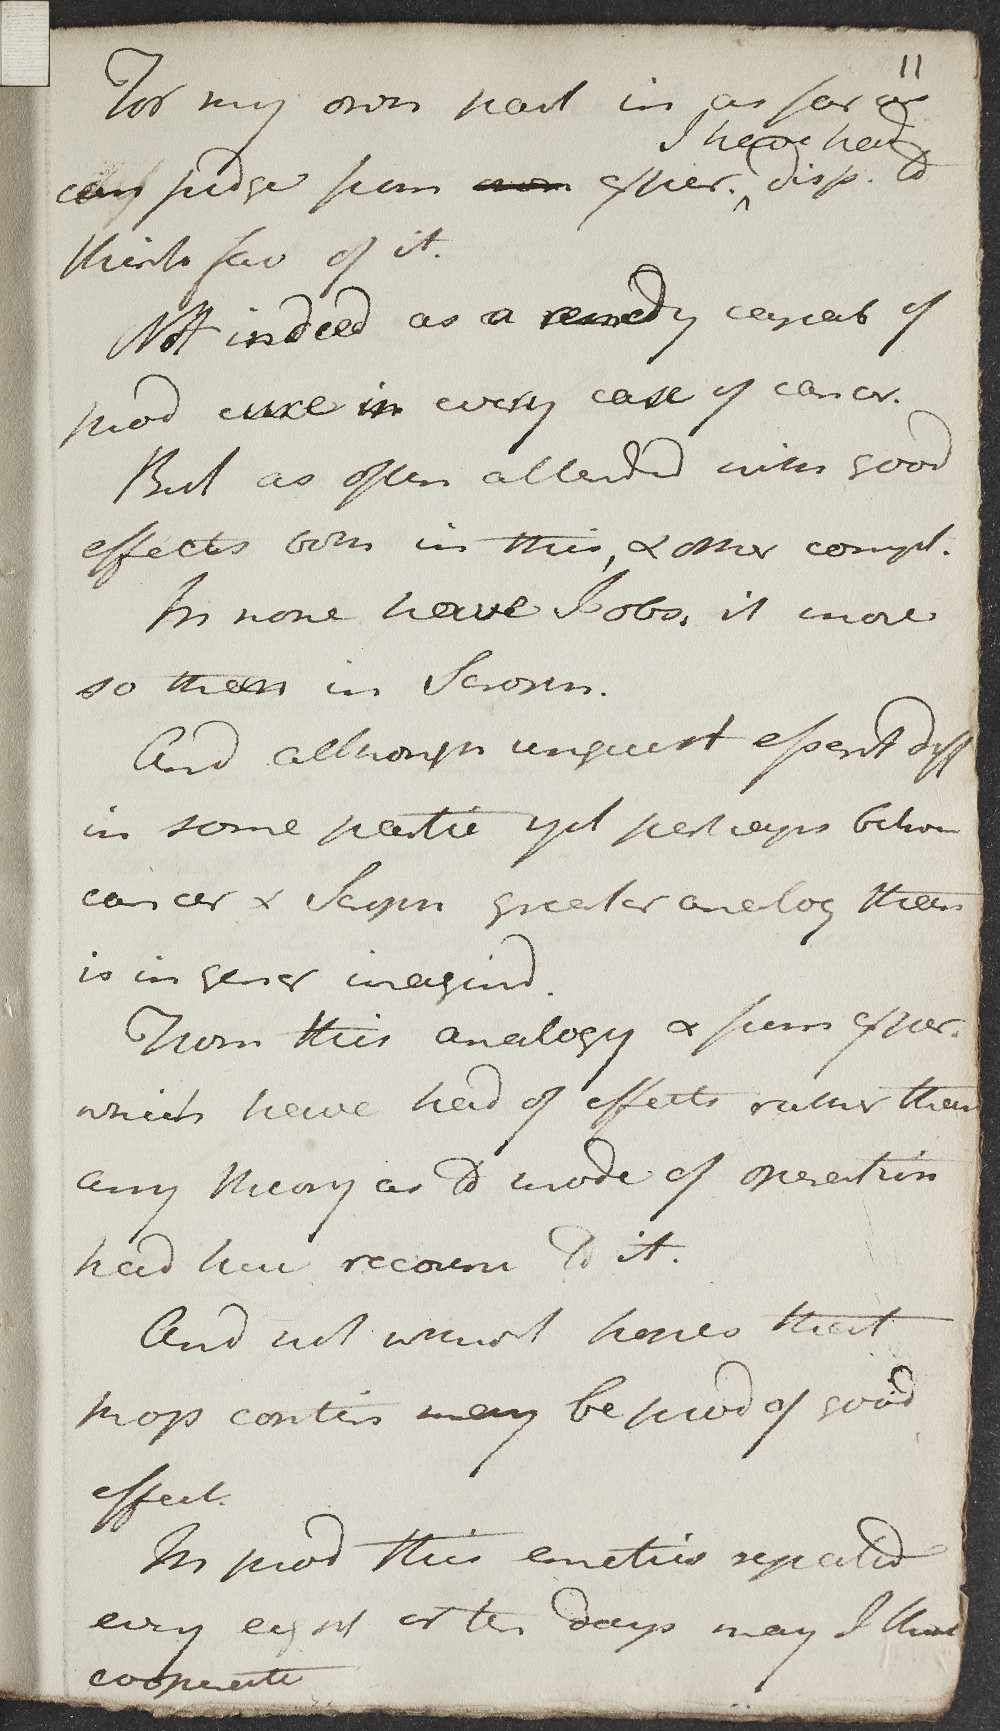 11
For my own part in as far as
can judge from own exper. I have had disp. to
think fav of it.
Not indeed as a remedy capab of
prod cure in every case of cancer.
But as often attended with good
effects both in this, & other compl.
In none have I obs. it more
so than in Scroph.
And although unquest essent diff
in some partic yet perhaps betwn
cancer & Scroph greater analog than
is in gener imagind.
From this analogy & from exper.
which have had of effects rather than
any theory as to mode of operation
had here recourse to it.
And not without hopes that
prop contin may be prod of good
effect.
In prod this emetics repeated
every eight or ten days may I think
cooperate